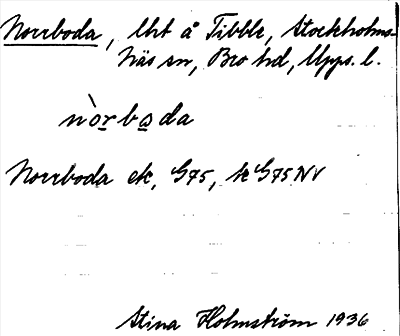 Norrboda, lht å Tibble, Stockholms-
Näs sn, Bro hd, Upps. l.
nòrboda
Norrboda ek, G75, tr G75NV
Stina Holmström 1936